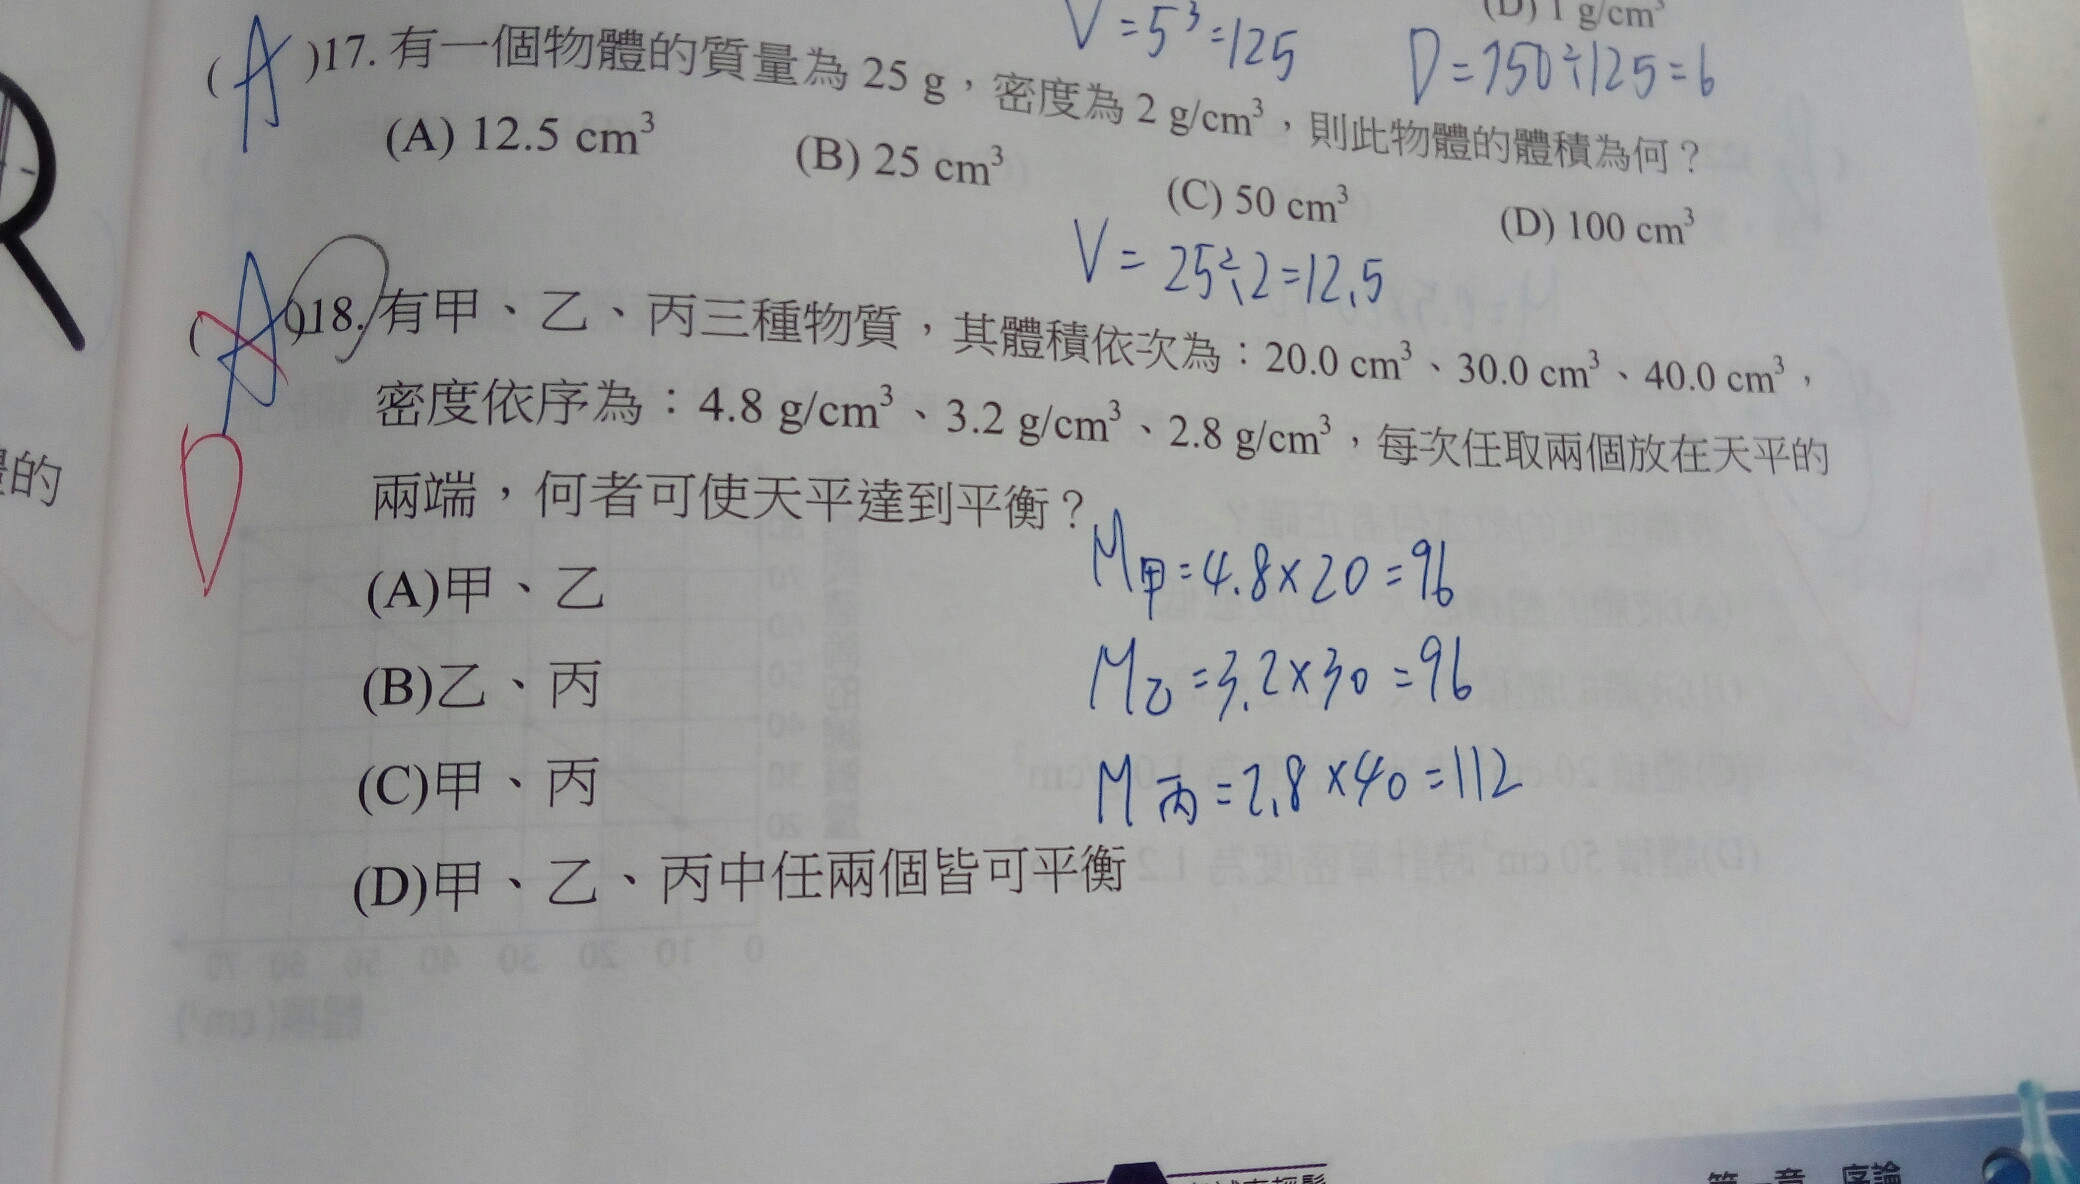 (D) 1 g/cm³
V=5³=125
D=750÷125=6
(A)17. 有一個物體的質量為 25 g，密度為 2 g/cm³，則此物體的體積為何？
(A) 12.5 cm³ (B) 25 cm³ (C) 50 cm³ (D) 100 cm³
V=25÷2=12.5
(A)18. 有甲、乙、丙三種物質，其體積依次為：20.0 cm³、30.0 cm³、40.0 cm³，
D
密度依序為：4.8 g/cm³、3.2 g/cm³、2.8 g/cm³，每次任取兩個放在天平的
兩端，何者可使天平達到平衡？
(A)甲、乙
M甲=4.8×20=96
(B)乙、丙
M乙=3.2×30=96
(C)甲、丙
M丙=2.8×40=112
(D)甲、乙、丙中任兩個皆可平衡
的
第一章 序論